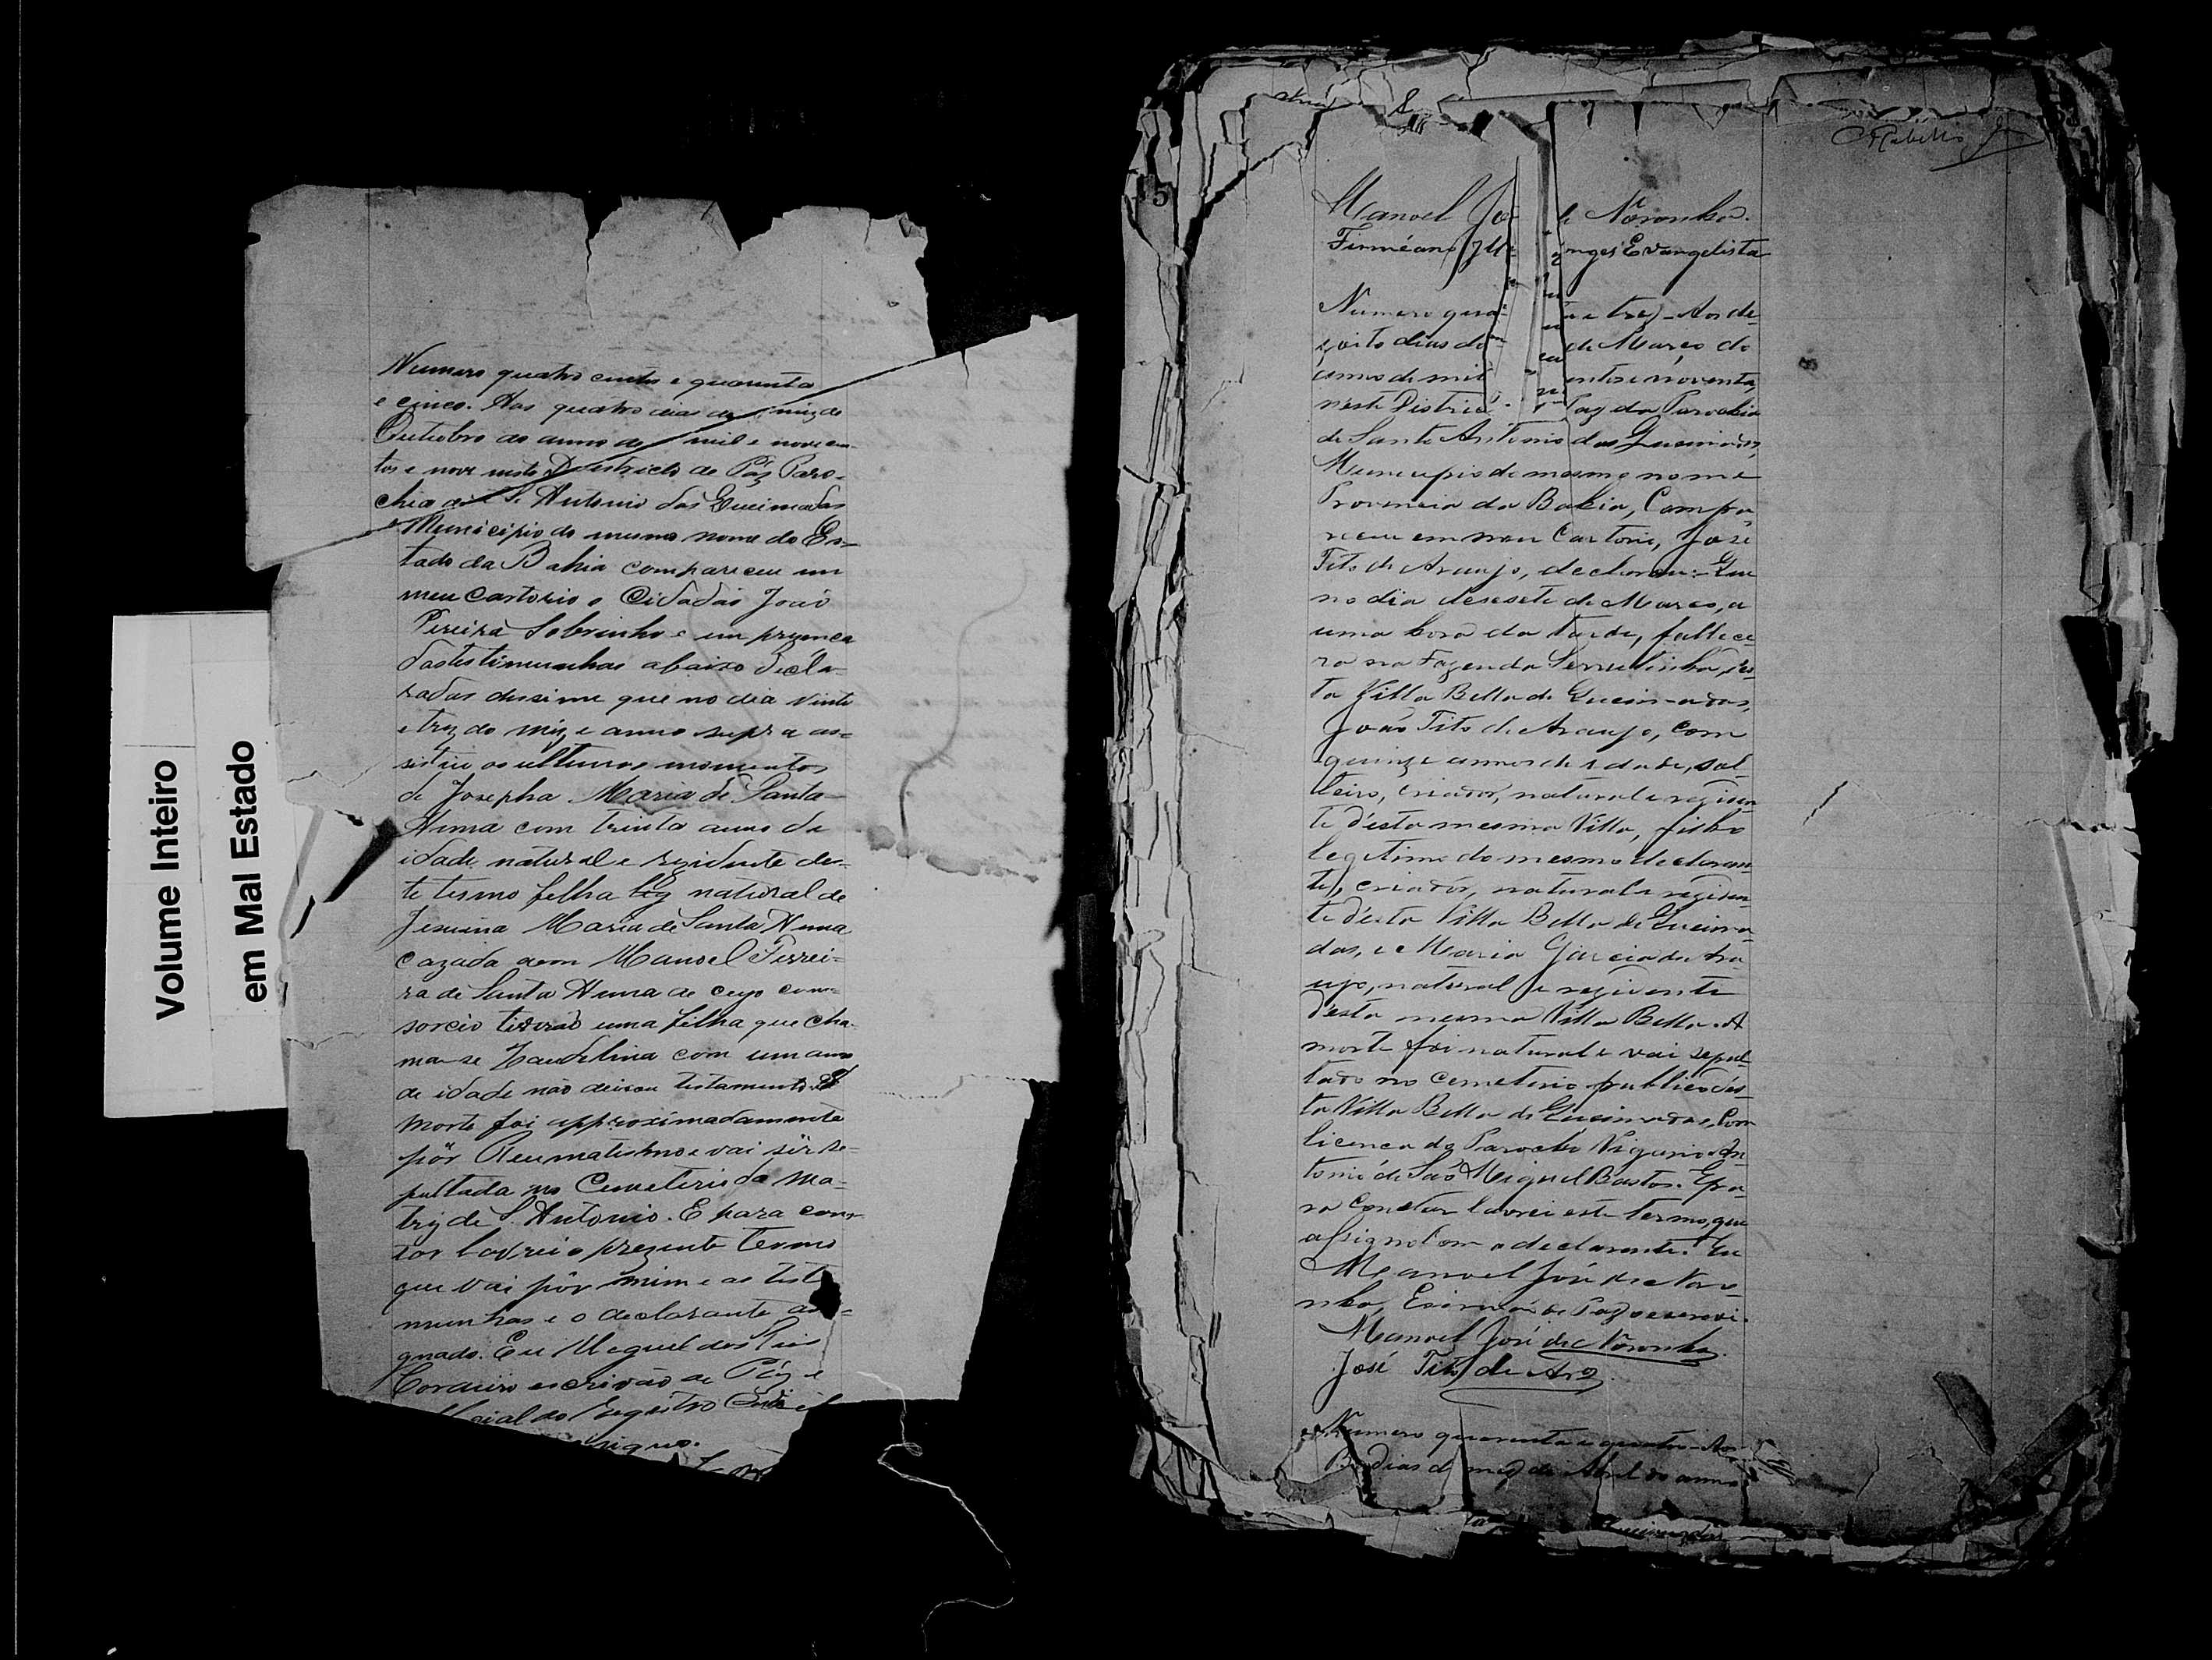 Volume Inteiro
em Mal Estado
Numero quatro centos e quarenta
e cinco. Aos quatro dias do mez de
Outubro do anno de mil e novecen-
tos e nove neste Districto de Páz Paro-
chia de S. Antonio das Queimadas
e Municipio do mesmo nome do Es-
tado da Bahia compareceu em
meu Cartorio o Cidadão João
Pereira Sobrinho e em prezença
das testimunhas abaixo decla-
radas disse-me que no dia vinte
e trez do mez e anno supra as-
sistiu os ultimos momentos
de Josepha Maria de Santa
Anna com trinta annos de
idade natural e rezidente des-
te termo filha natural de
Jesuina Maria de Santa Anna
cazada com Manoel Ferrei-
ra de Santa Anna de cujo con-
sorcio tiveram uma filha que cha-
ma-se com um anno
de idade não deixou testamento. A
morte foi approximadamente
pôr Reumatismo e vai sêr se-
pultada no Cemeterio da Ma-
triz de S. Antonio. E para cons-
tar lavrei o prezente termo
que vai pôr mim e as teste-
munhas e o declarante asi-
gnado. Eu Miguel dos Reis
Cordeiro escrivão de Páz e
official do Registro Civil
asigno.
5
Rabello
Manoel José de Noronha.
Firmeano Evangelista
Numero quarenta e trez - Aos de-
zoito dias do mez de Março do
anno de mil oitocentos e noventa,
n'este Districto de Paz da Parochia
de Santo Antonio das Queimadas,
Municipio do mesmo nome
Provincia da Bahia, Compa-
receu em meu Cartorio, José
Tito de Araujo, declarou: Que
no dia desesete de Março, a
uma hora da tarde, fallece-
ra na Fazenda Serrotinha, d'es-
ta Villa Bella de Queimadas,
João Tito de Araujo, com
quinze annos de idade, sol-
teiro, criador, natural e rezidem-
te d'esta mesma Villa, filho
legitimo do mesmo declaran-
te, criador, natural e rezidem-
te d'esta Villa Bella de Queima-
das, e Maria Garcia de Ara-
ujo, natural e rezidente
d'esta mesma Villa Bella. A
morte foi natural e vai sepul-
tado no Cemeterio publico d'es-
ta Villa Bella de Queimadas, Com
licença do Parocho Vigario An-
tonio de São Miguel Bastos. E pa-
ra constar lavrei este termo, que
assigno com o declarante. Eu
Manoel José de Noro-
nha, Escrivão de Paz o escrevi.
Manoel José de Noronha.
José Tito de Aro.
Numero quarenta e quatro - Aos
dias do mez de Abril do anno
Queimadas